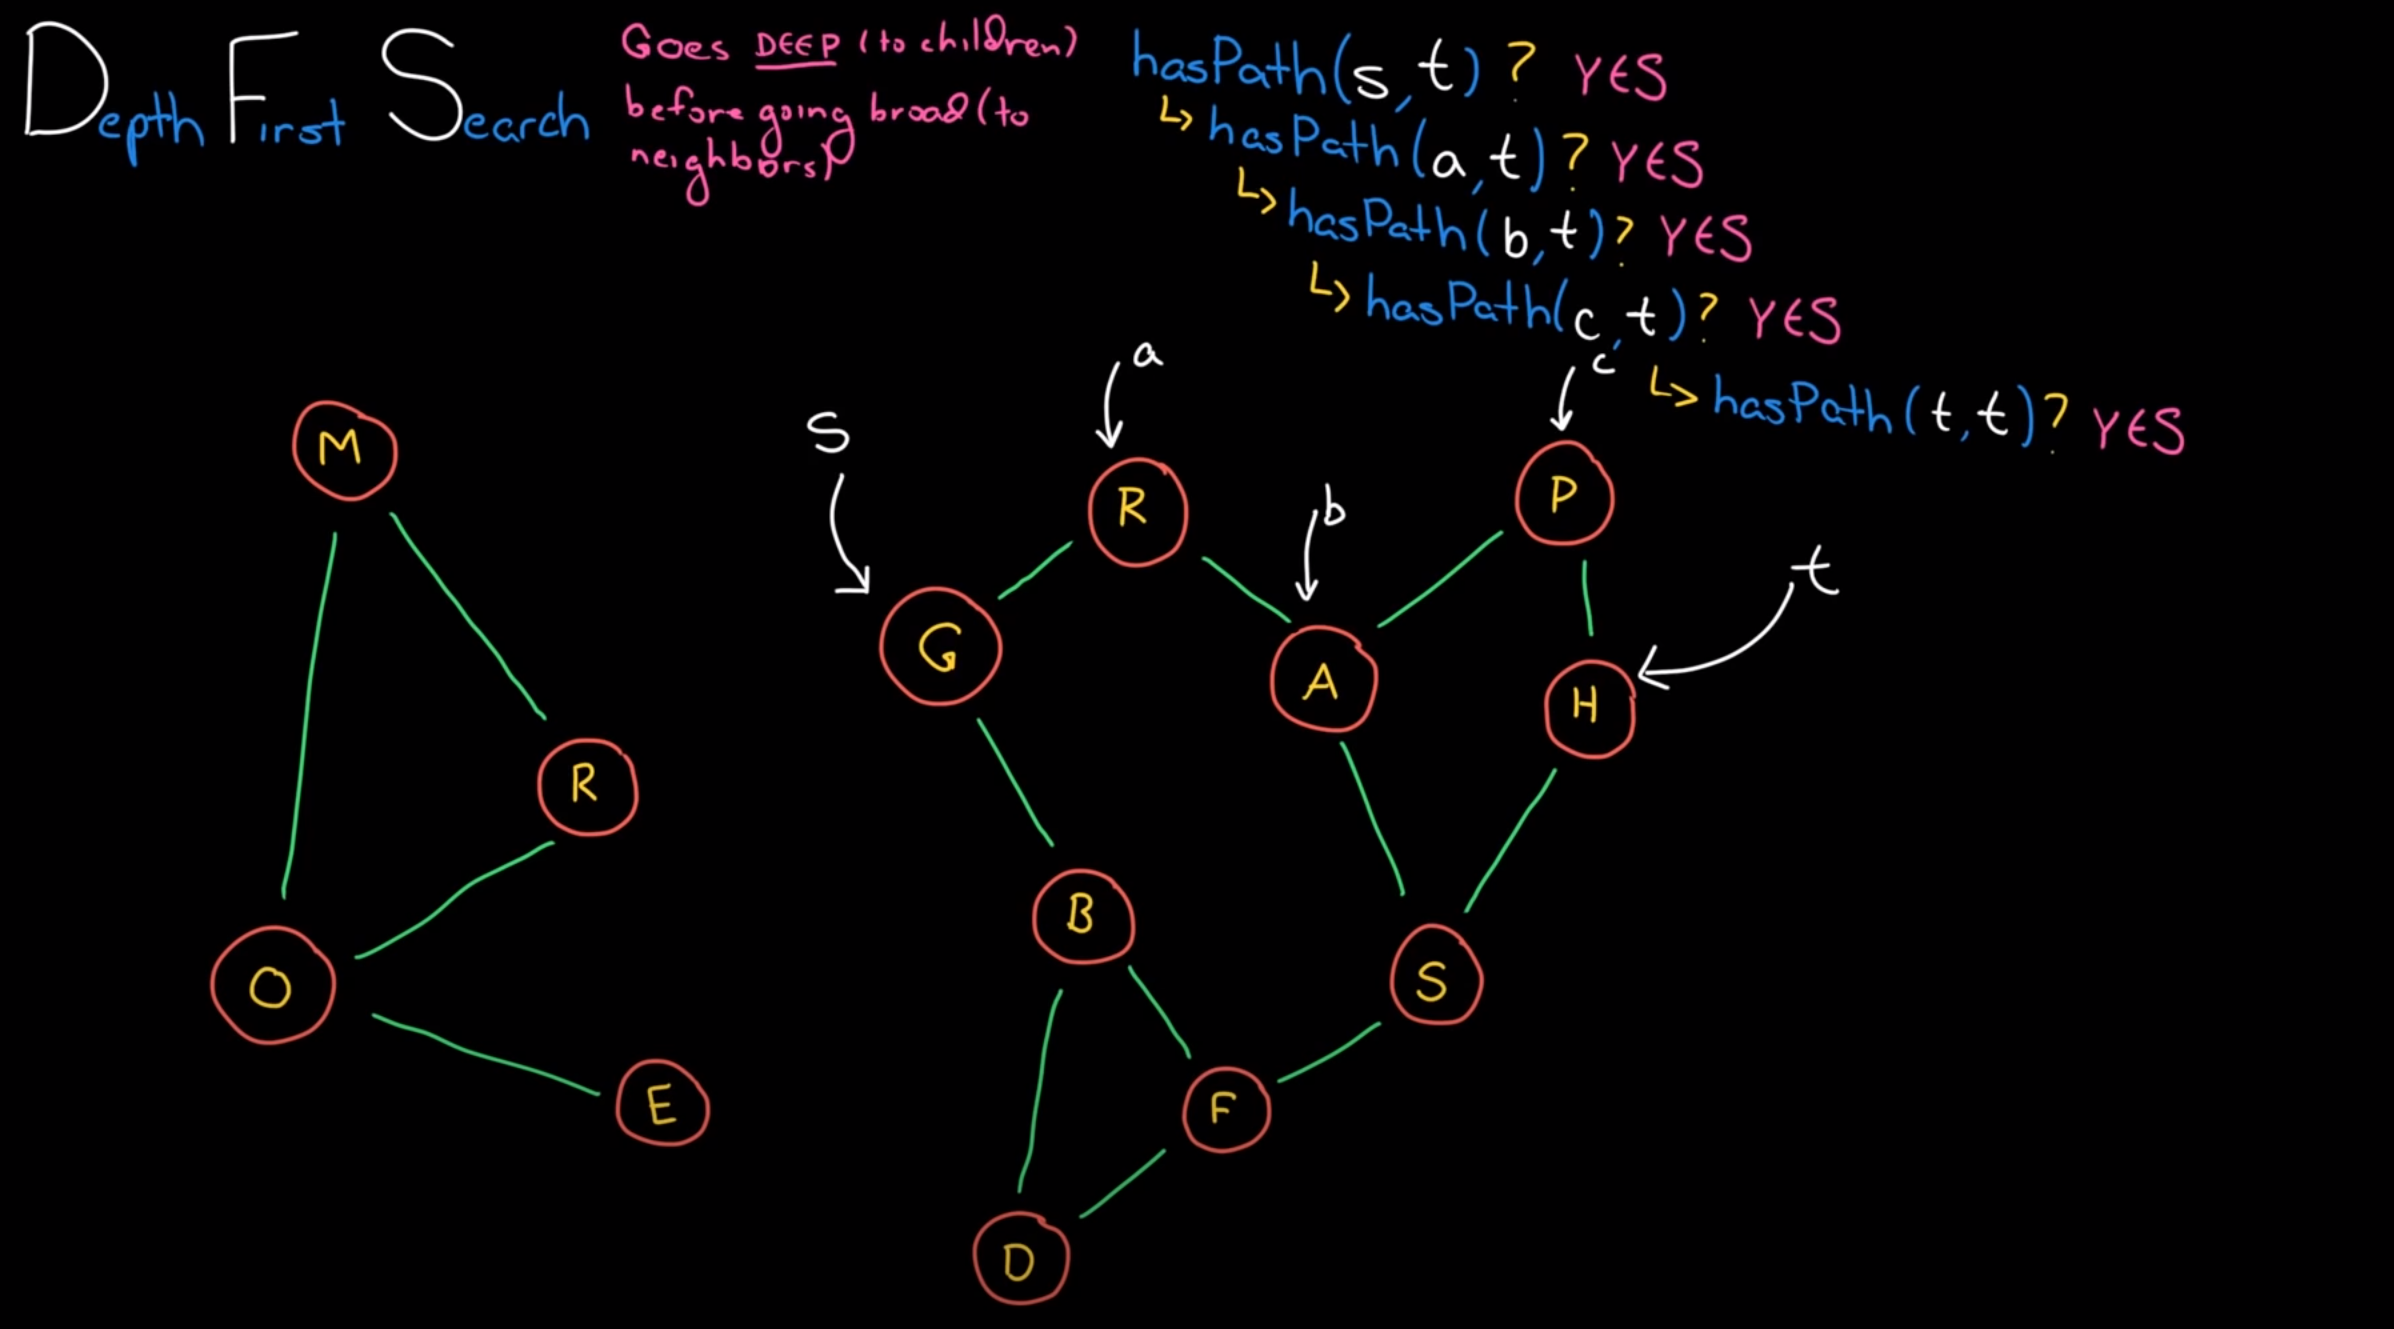 Depth First Search
Goes DEEP (to children)
before going broad (to
neighbors)
hasPath(s, t)? YES
↳ hasPath(a, t)? YES
↳ hasPath(b, t)? YES
↳ hasPath(c, t)? YES
↳ hasPath(t, t)? YES
a
c
s
M
R
P
b
t
G
A
H
R
B
O
S
E
F
D